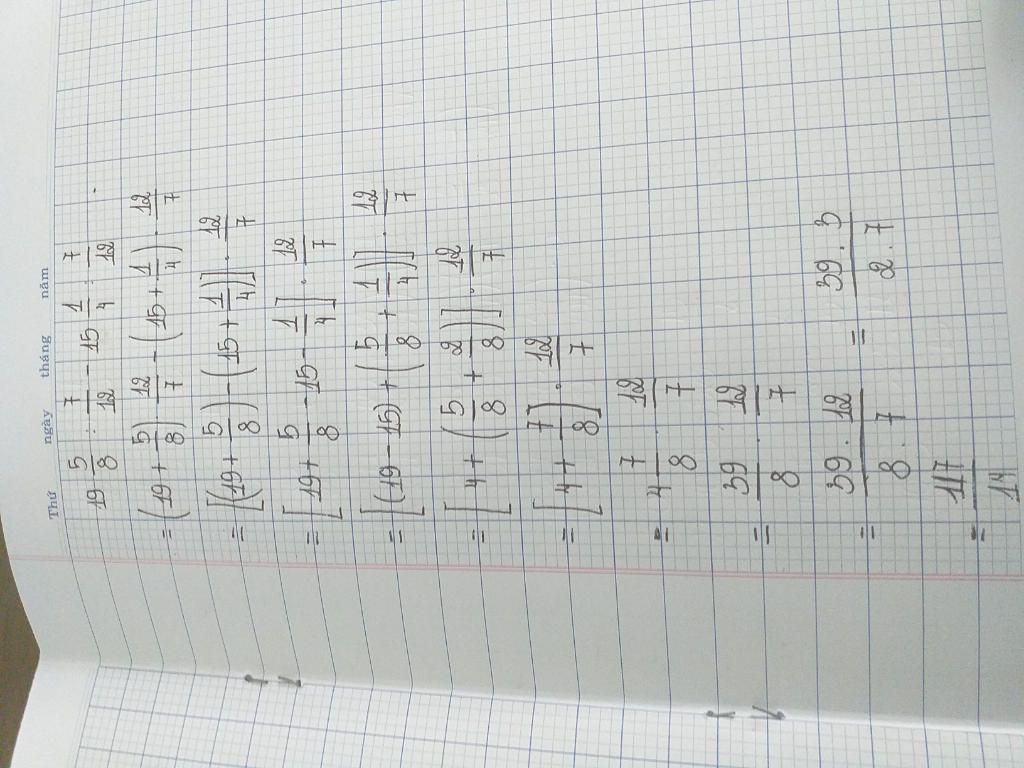 Thứ ngày tháng năm
19 5/8 : 7/12 - 15 1/4 : 7/12
= (19 + 5/8) . 12/7 - (15 + 1/4) . 12/7
= [(19 + 5/8) - (15 + 1/4)] . 12/7
= [19 + 5/8 - 15 - 1/4] . 12/7
= [(19 - 15) + (5/8 + 1/4)] . 12/7
= [4 + (5/8 + 2/8)] . 12/7
= [4 + 7/8] . 12/7
= 4 7/8 . 12/7
= 39/8 . 12/7
= 39 . 12 / 8 . 7 = 39 . 3 / 2 . 7
= 117/14